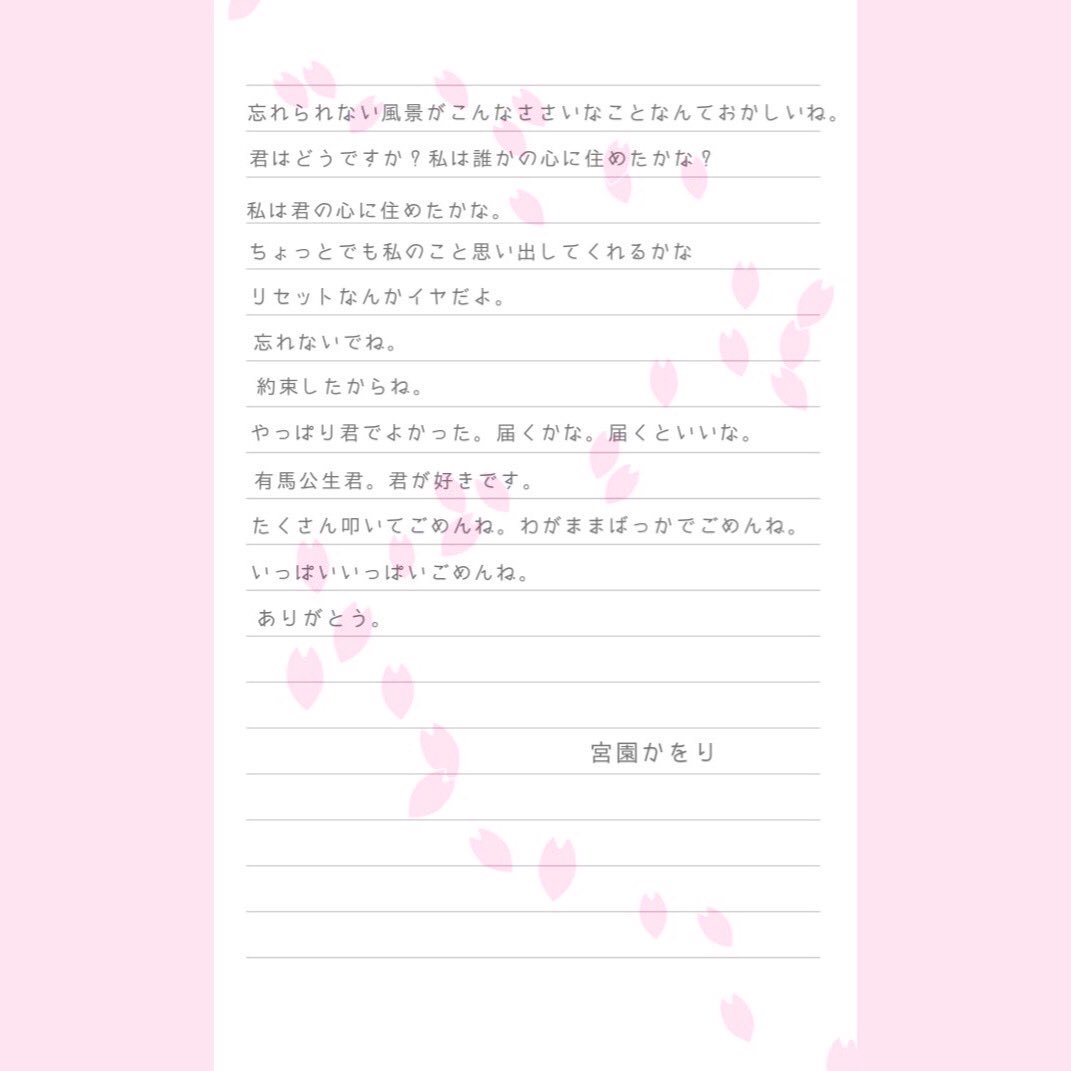 忘れられない風景がこんなささいなことなんておかしいね。
君はどうですか？私は誰かの心に住めたかな？
私は君の心に住めたかな。
ちょっとでも私のこと思い出してくれるかな
リセットなんかイヤだよ。
忘れないでね。
約束したからね。
やっぱり君でよかった。届くかな。届くといいな。
有馬公生君。君が好きです。
たくさん叩いてごめんね。わがままばっかでごめんね。
いっぱいいっぱいごめんね。
ありがとう。
宮園かをり